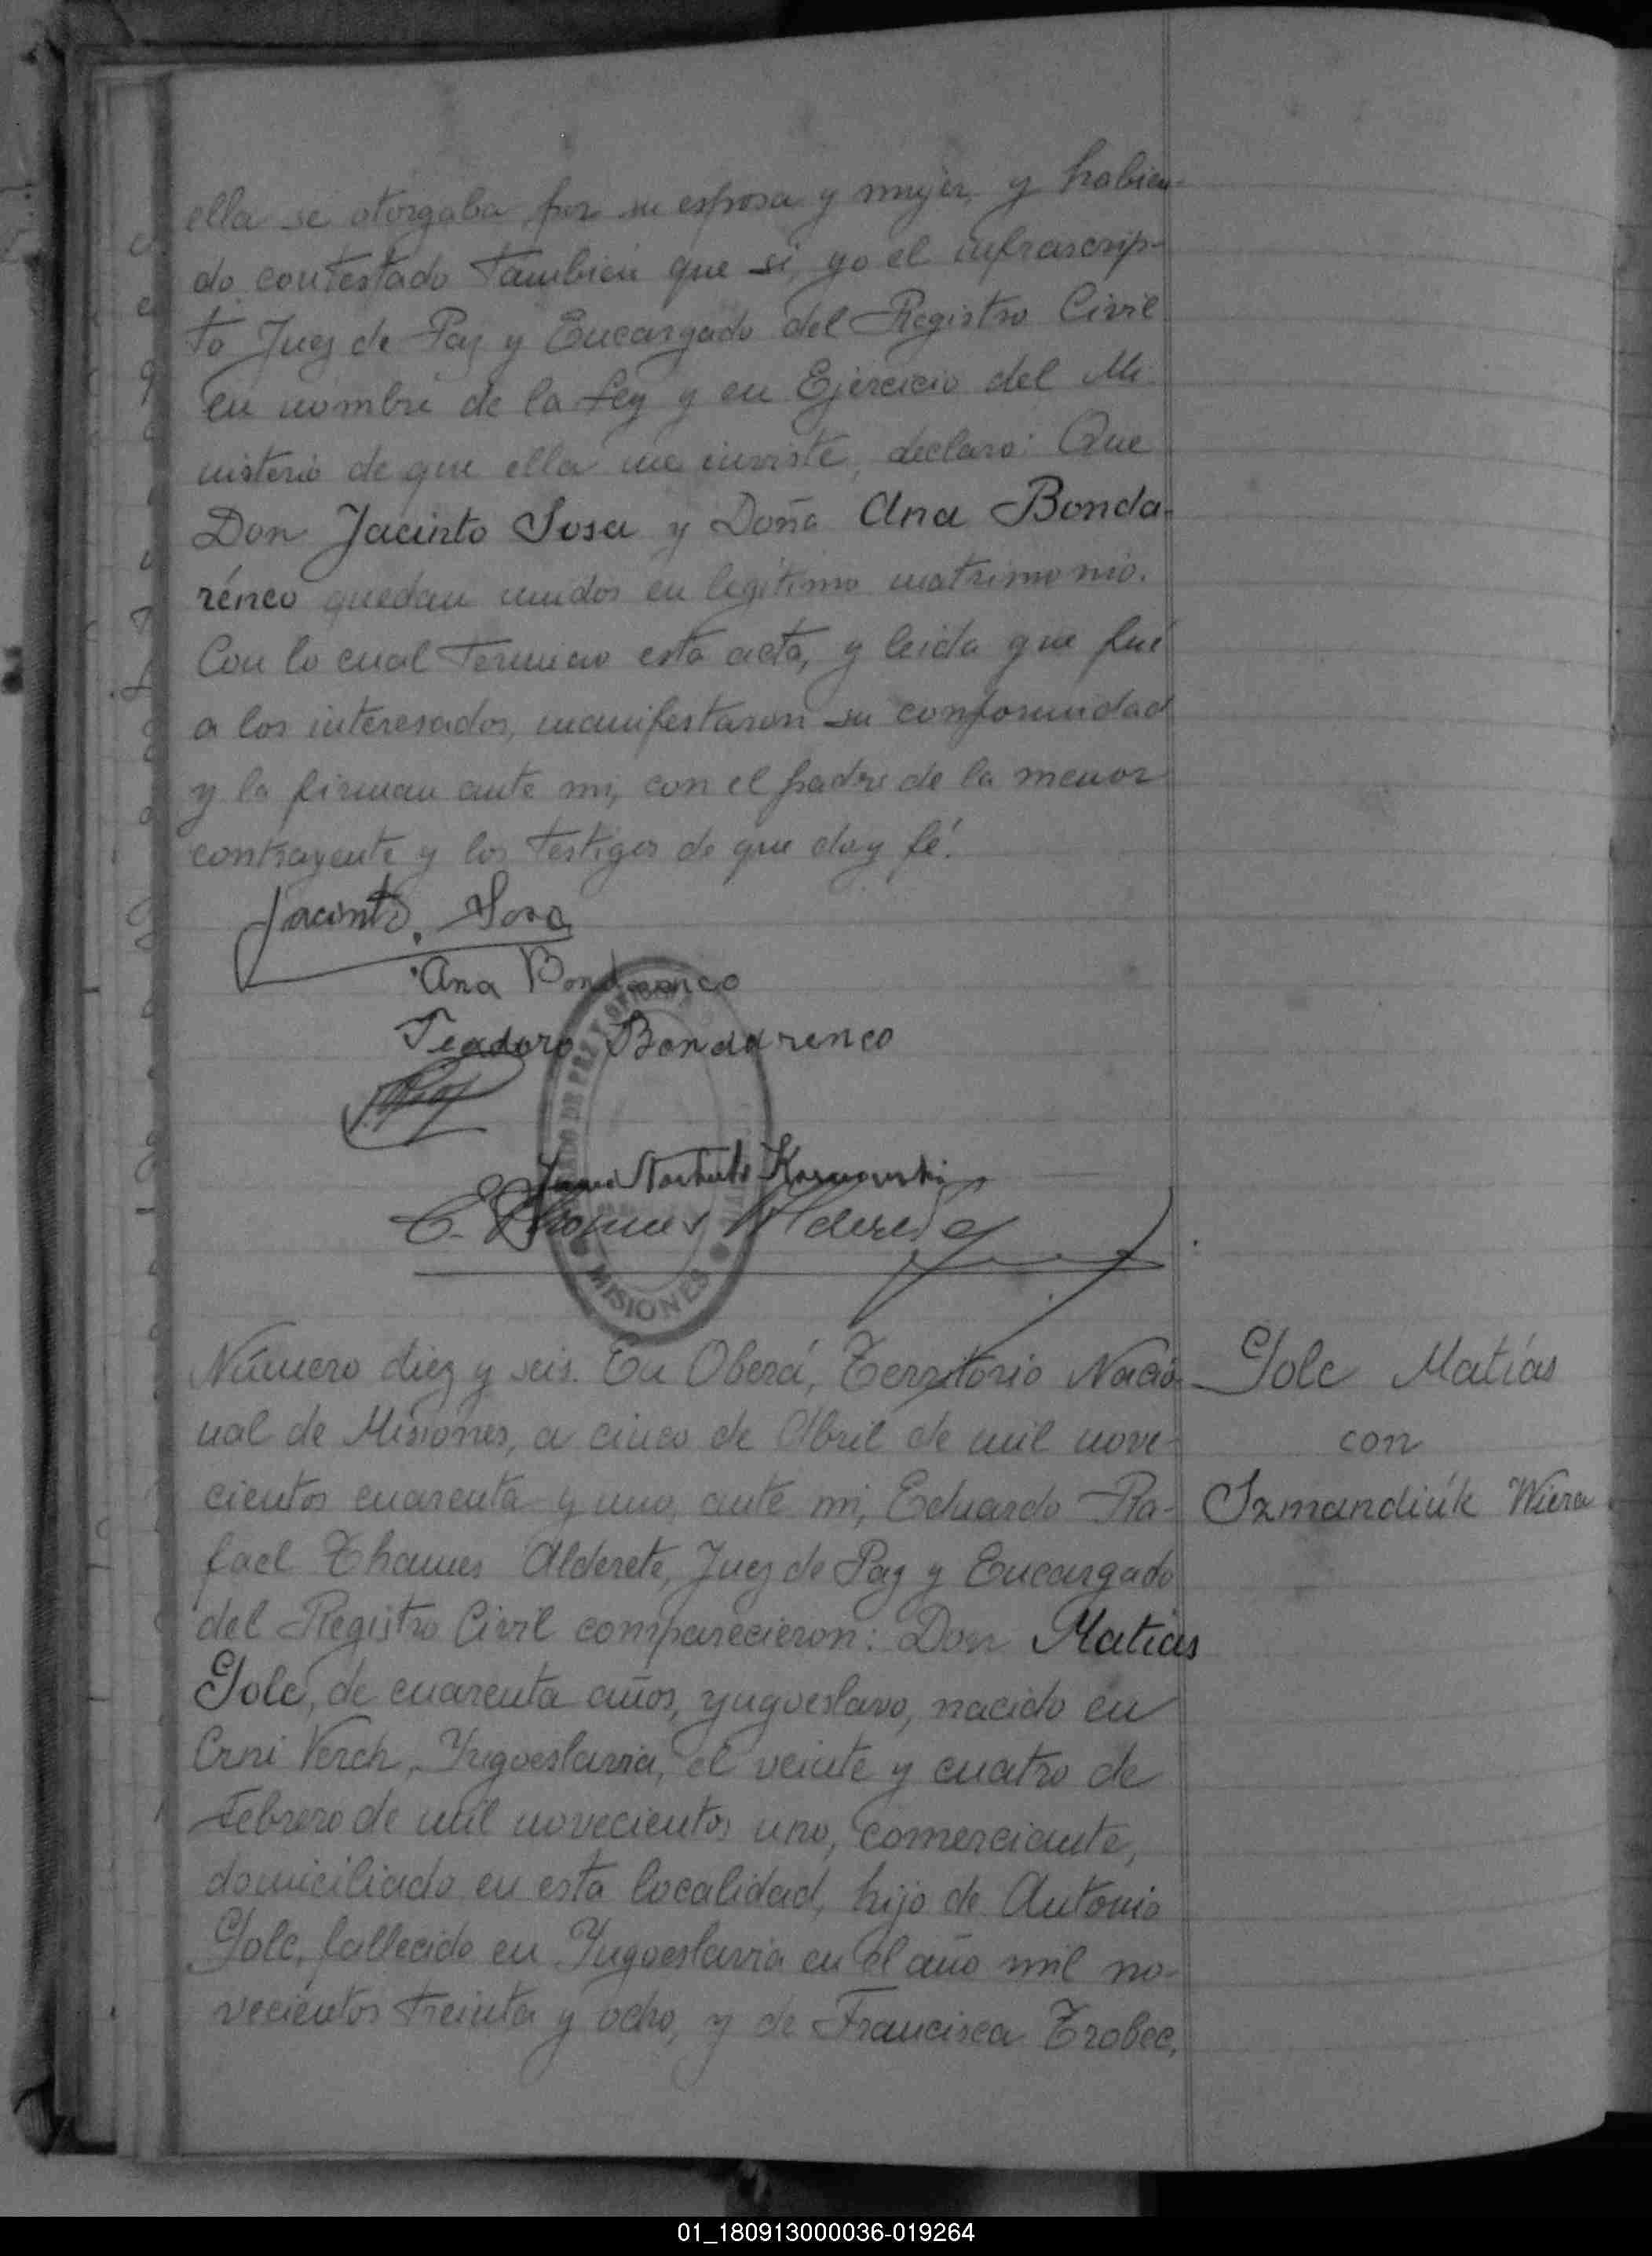 ella se otorgaba por su esposa y mujer, y habien-
do contestado también que sí, yo el infrascrip-
to Juez de Paz y Encargado del Registro Civil
en nombre de la Ley y en Ejercicio del Mi-
nisterio de que ella me inviste, declaro: Que
Don Jacinto Sosa y Doña Ana Bonda-
rénco quedan unidos en legítimo matrimonio.
Con lo cual termino esta acta, y leida que fué
a los interesados, manifestaron su conformidad
y la firman ante mi, con el padre de la menor
contrayente y los testigos de que doy fé.
Jacinto. Sosa
Ana Bondarenco
Teadoro Bondarenco
Juan Norberto
E. Thames Alderete
MISIONES
Número diez y seis. En Oberá, Territorio Nacio-
Golc Matías
nal de Misiones, a cinco de Abril de mil nove-
con
cientos cuarenta y uno, ante mi, Eduardo Ra-
Szmandiúk Wiera
fael Thames Alderete, Juez de Paz y Encargado
del Registro Civil comparecieron: Don Matías
Golc, de cuarenta años, yugoeslavo, nacido en
Crni Verch, Yugoeslavia, el veinte y cuatro de
Febrero de mil novecientos uno, comerciante,
domiciliado en esta localidad, hijo de Antonio
Golc, fallecido en Yugoeslavia en el año mil no-
vecientos treinta y ocho, y de Francisca Trobec,
01_180913000036-019264